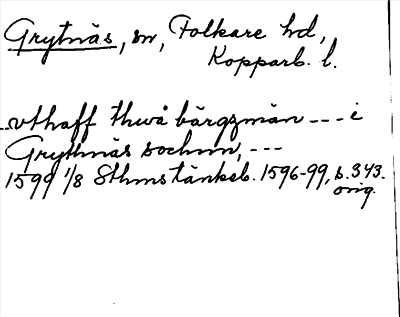 Grytnäs, sn, Folkare hd,
Kopparb. l.
..vthaff thwå bärgzmän --- i
Grythnäs sochnn, ---
1599 1/8 Sthms tänkeb. 1596-99, s. 343.
orig.